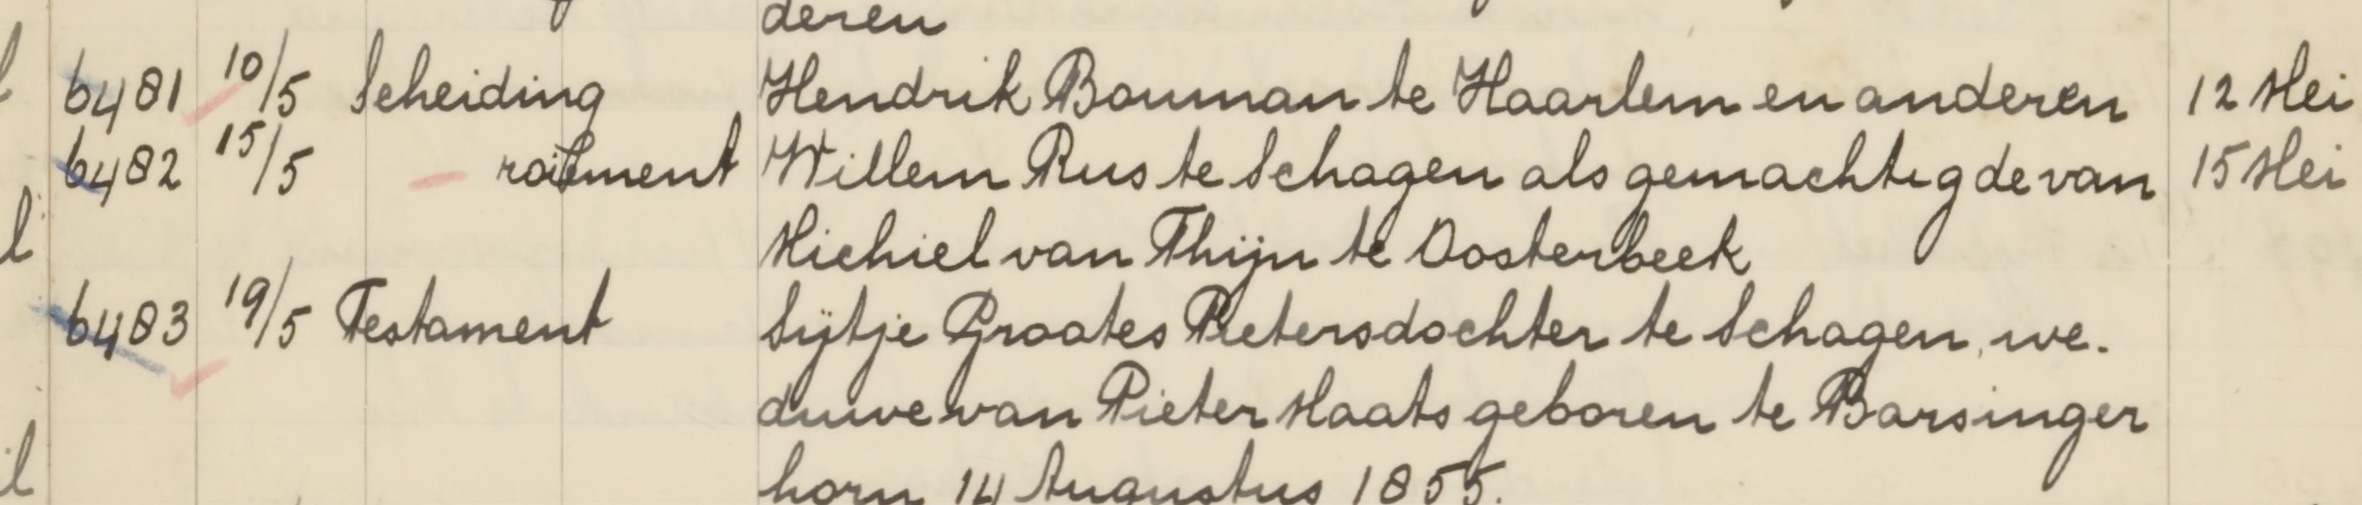 deren
6481 10/5 Scheiding Hendrik Bouman te Haarlem en anderen 12 Mei
6482 15/5 roiement Willem Rus te Schagen als gemachtigde van 15 Mei
l Michiel van Thijn te Oosterbeek
6483 19/5 Testament Sijtje Groates Pietersdochter te Schagen, we-
duwe van Pieter Maats geboren te Barsinger
l horn 14 Augustus 1855.